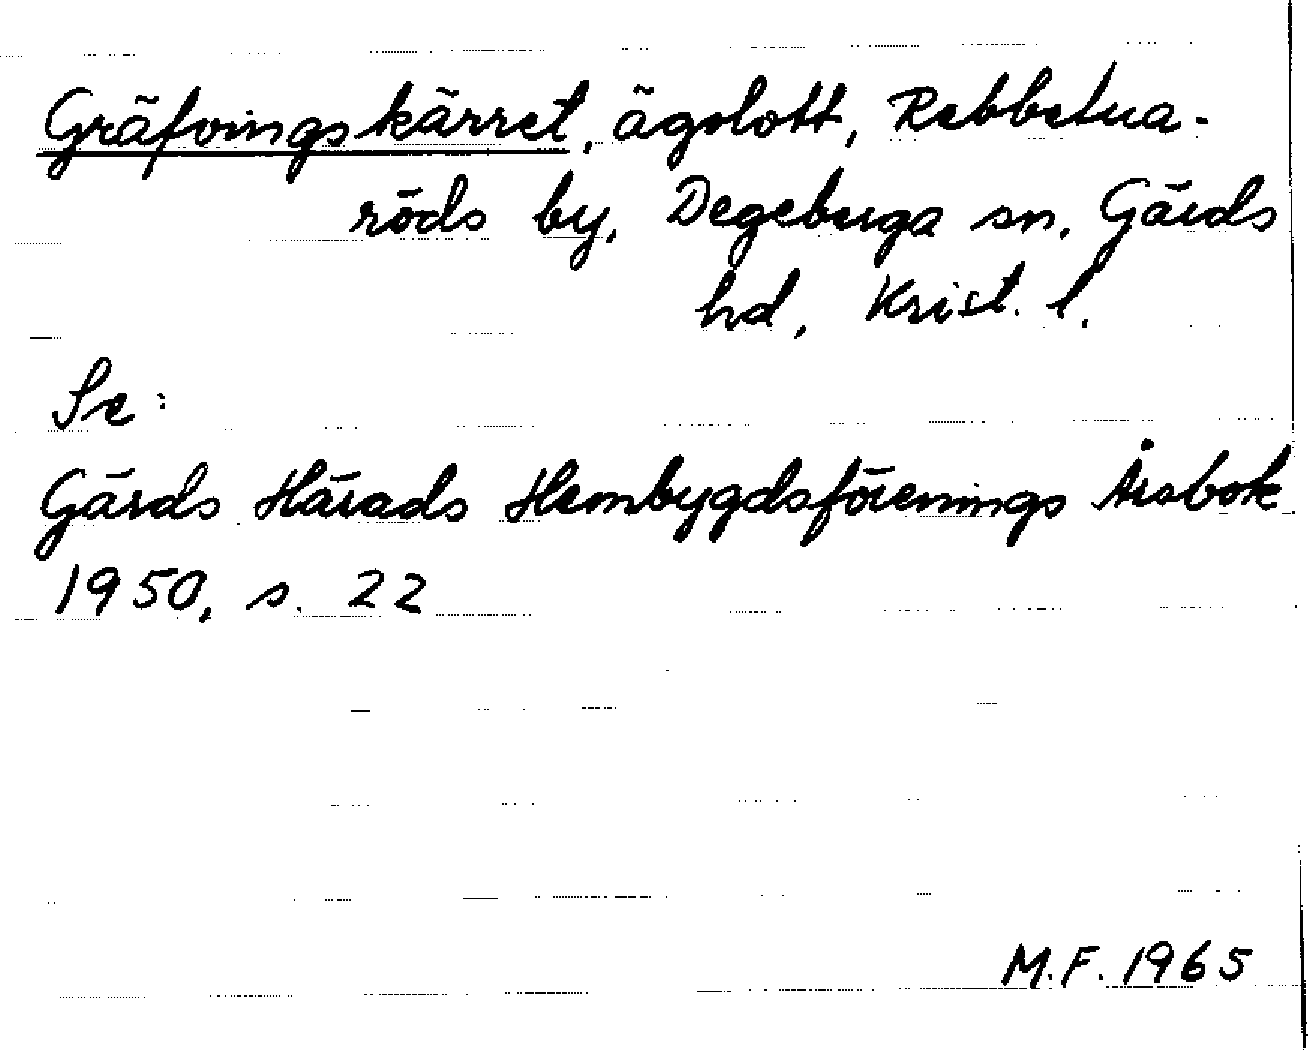 Gräfvingskärret, ägolott, Rebbetua-
röds by, Degeberga sn, Gärds
hd, Krist. l.
Se:
Gärds Härads Hembygdsförenings Årsbok
1950, s. 22
M.F. 1965